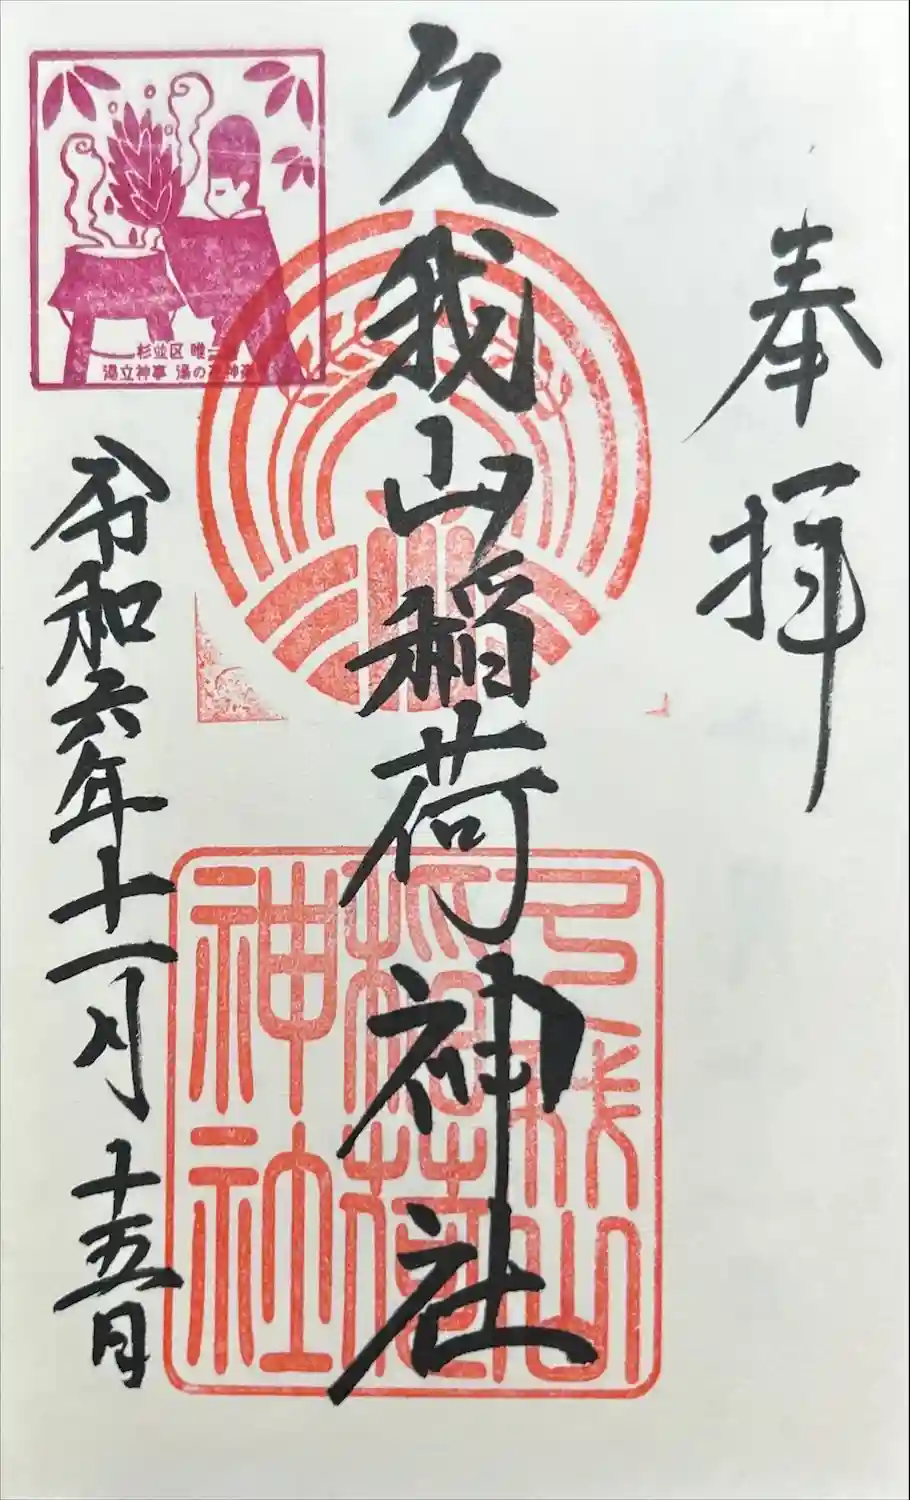 奉拝
久我山稲荷神社
令和六年十一月十五日
久我山
稲荷
神社
杉並区 唯一
湯立神事 湯の花神